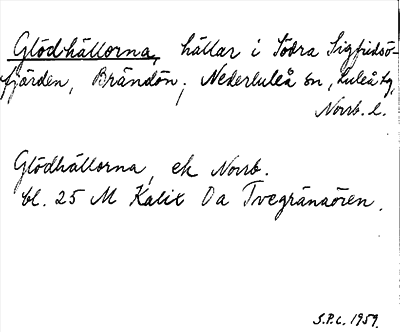 Glödhällorna, hällar i Södra Sigfridsö-
fjärden, Brändön; Nederluleå sn, Luleå tg,
Norrb. l.
Glödhällorna, ek Norrb.
bl. 25 M Kalix Oa Tvegränsören.
S.P.C. 1959.